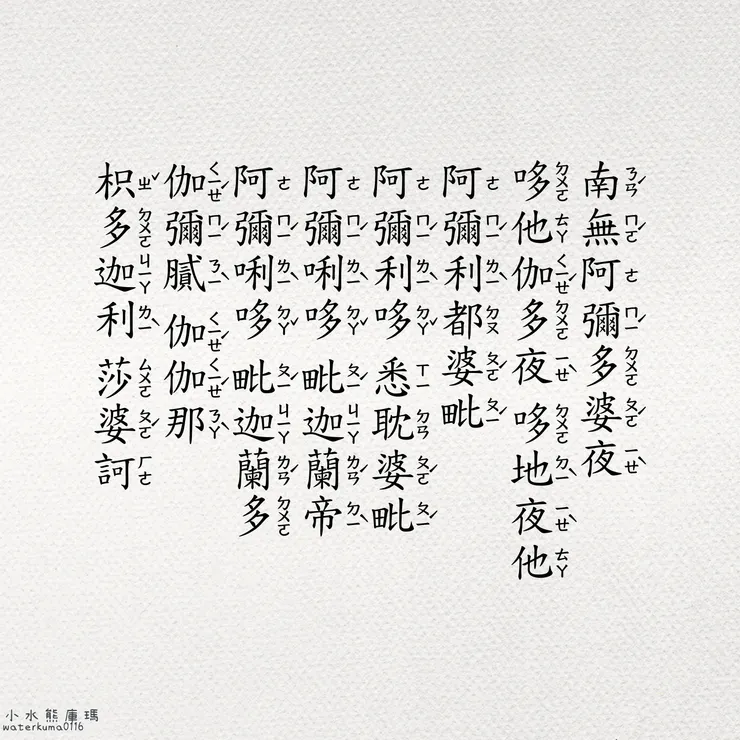 南無阿彌多婆夜
哆他伽多夜 哆地夜他
阿彌利都婆毗
阿彌利哆 悉耽婆毗
阿彌唎哆 毗迦蘭帝
阿彌唎哆 毗迦蘭多
伽彌膩 伽伽那
枳多迦利 莎婆訶
小水熊庫瑪
waterkuma0116